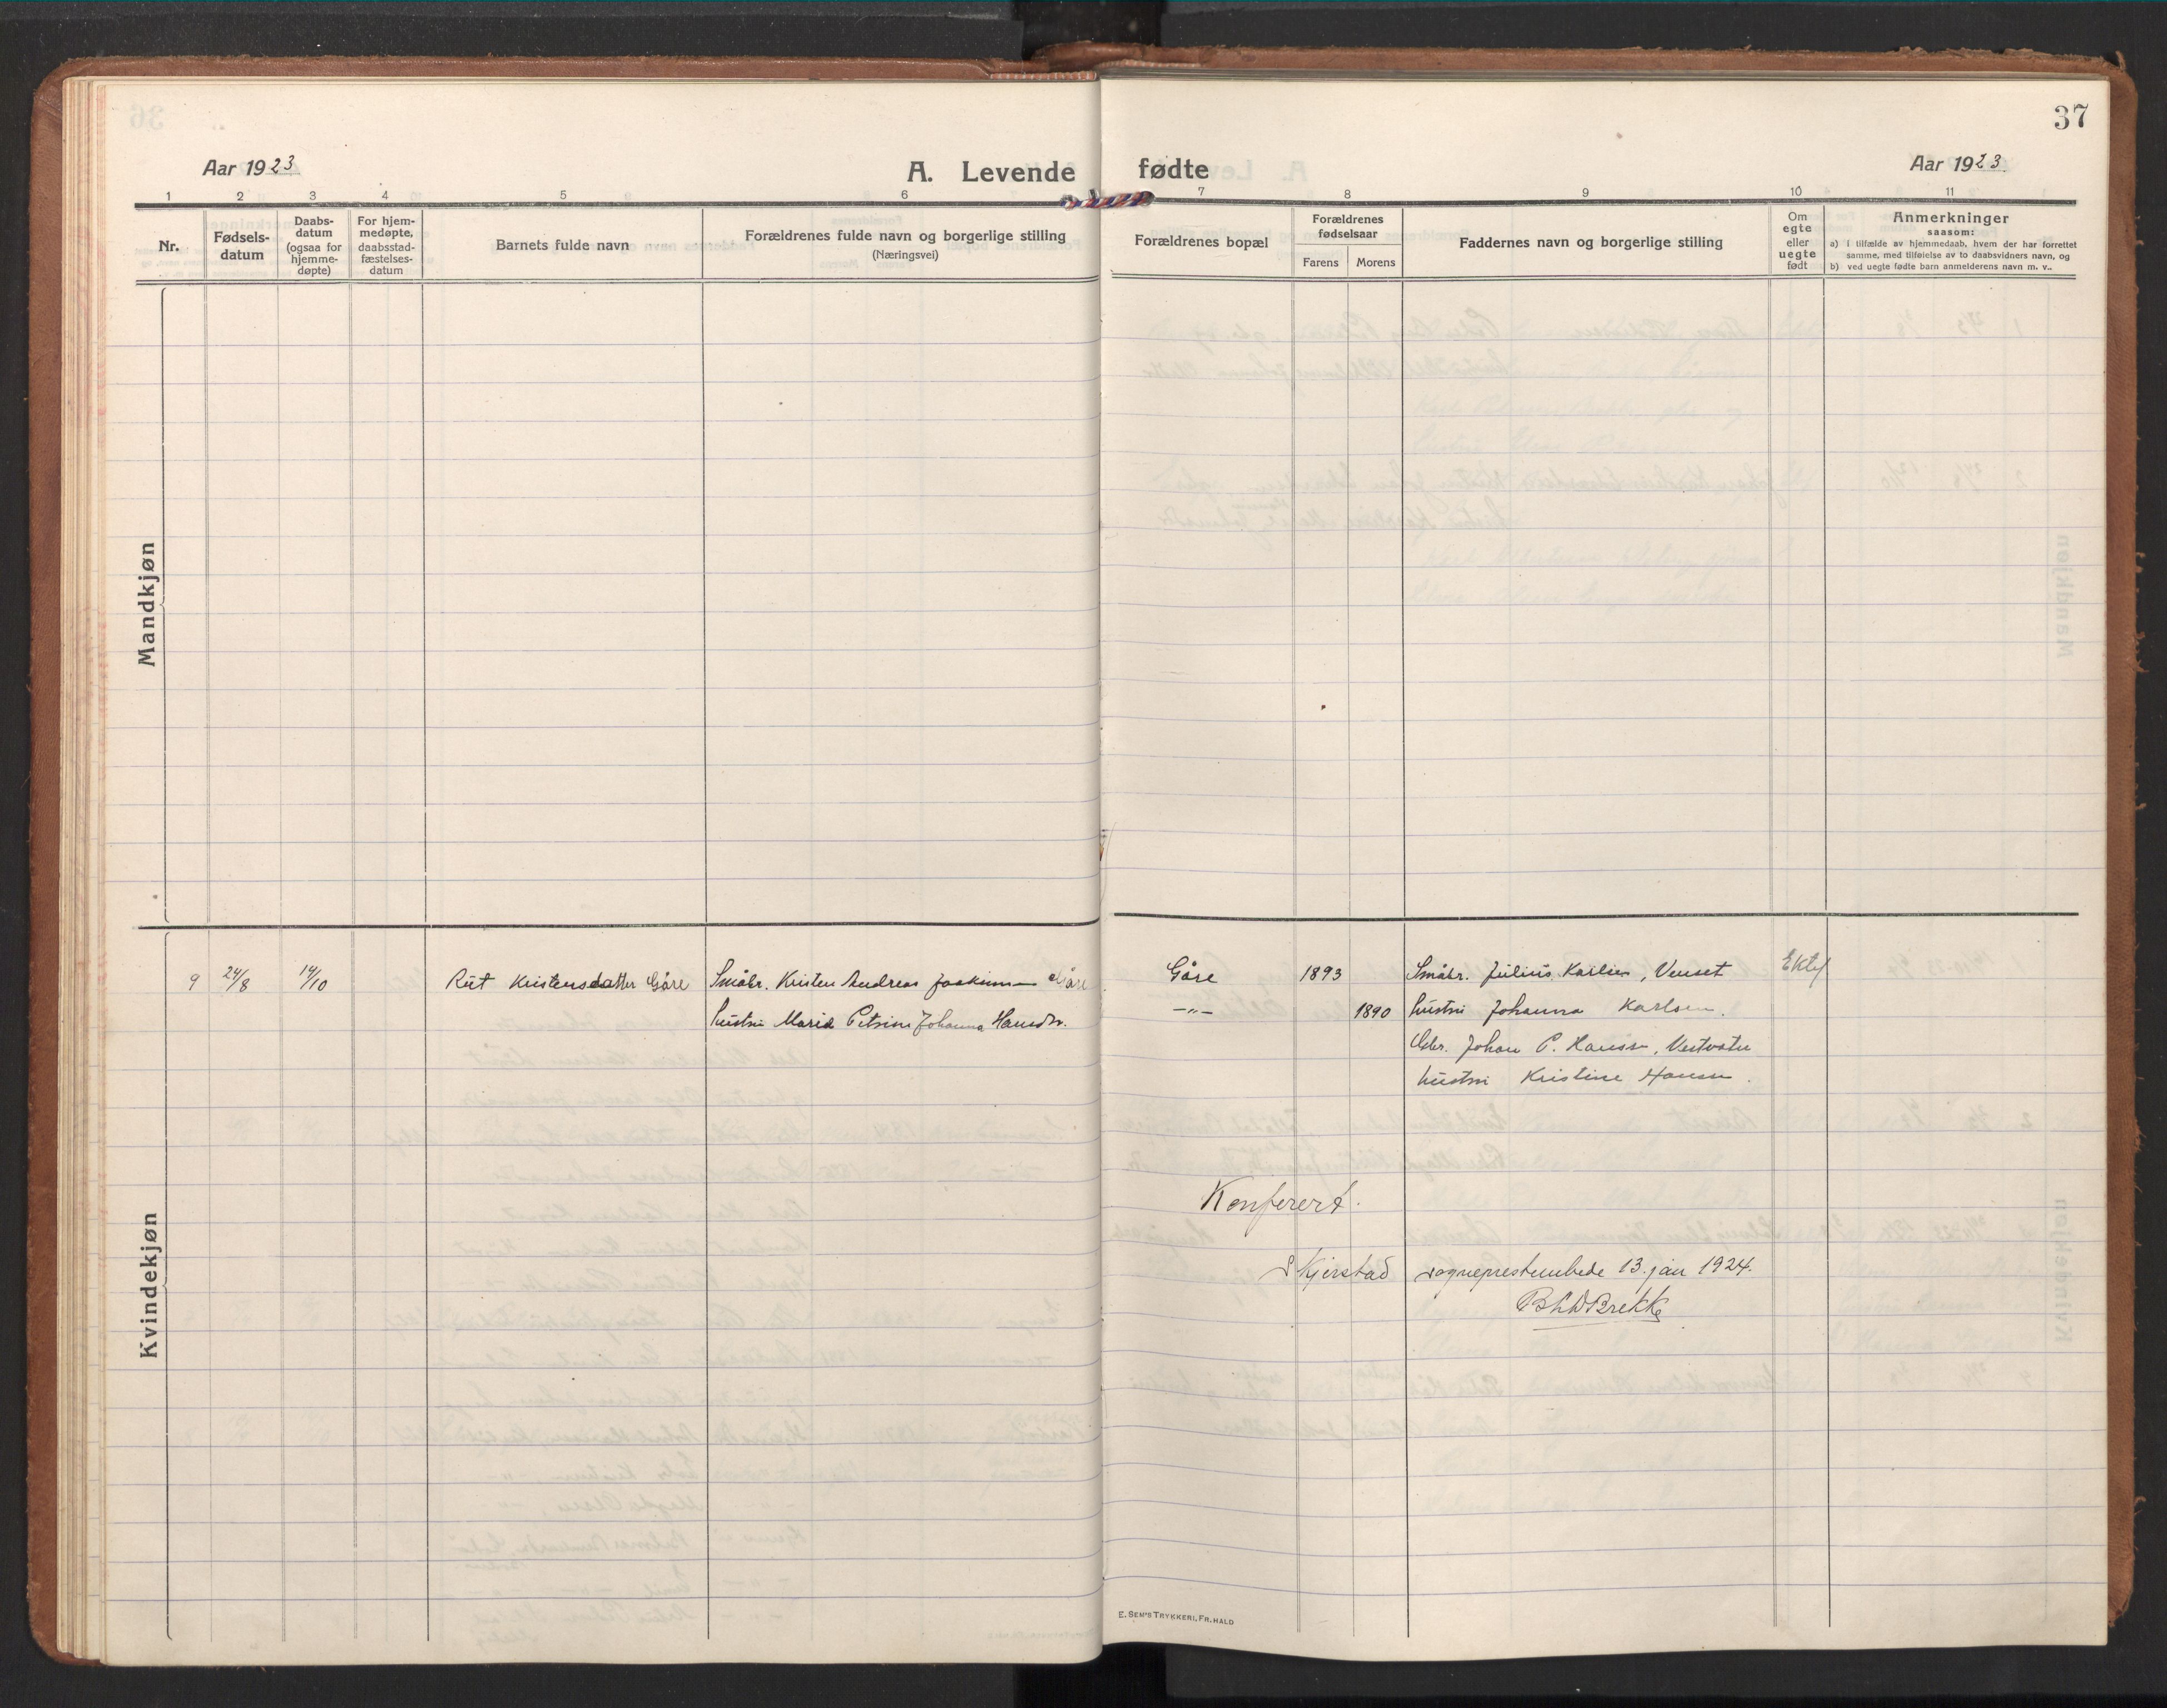 37
Aar 1923
A. Levende fødte
Aar 1923.
1 2 3 4 5 6 7 8 9 10 11
Nr.
Fødsels-
datum
Daabs-
datum
(ogsaa for
hjemme-
døpte)
For hjem-
medøpte,
daabsstad-
fæstelses-
datum
Barnets fulde navn
Forældrenes fulde navn og borgerlige stilling
(Næringsvei)
Forældrenes bopæl
Forældrenes
fødselsaar
Farens Morens
Faddernes navn og borgerlige stilling
Om
egte
eller
uegte
født
Anmerkninger
saasom:
a) i tilfælde av hjemmedaab, hvem der har forrettet
samme, med tilføielse av to daabsvidners navn, og
b) ved uegte fødte barn anmelderens navn m. v..
Mandkjøn
Kvindekjøn
9 24/8 14/10 Rut Kristensdatter Gåre Småbr. Kristen Andreas Joakimsen Gåre Gåre 1893 Småbr. Julius Karlsen, Venset Ekte
hustru Marie Petrine Johanna Hansdr. —"— 1890 hustru Johanna Karlsen.
Gbr. Johan P. Hansen, Vestvatn
hustru Kristine Hansen.
Konferert.
Skjerstad sogneprestembede 13. jan 1924.
Brekke
E. SEM'S TRYKKERI, FR.HALD